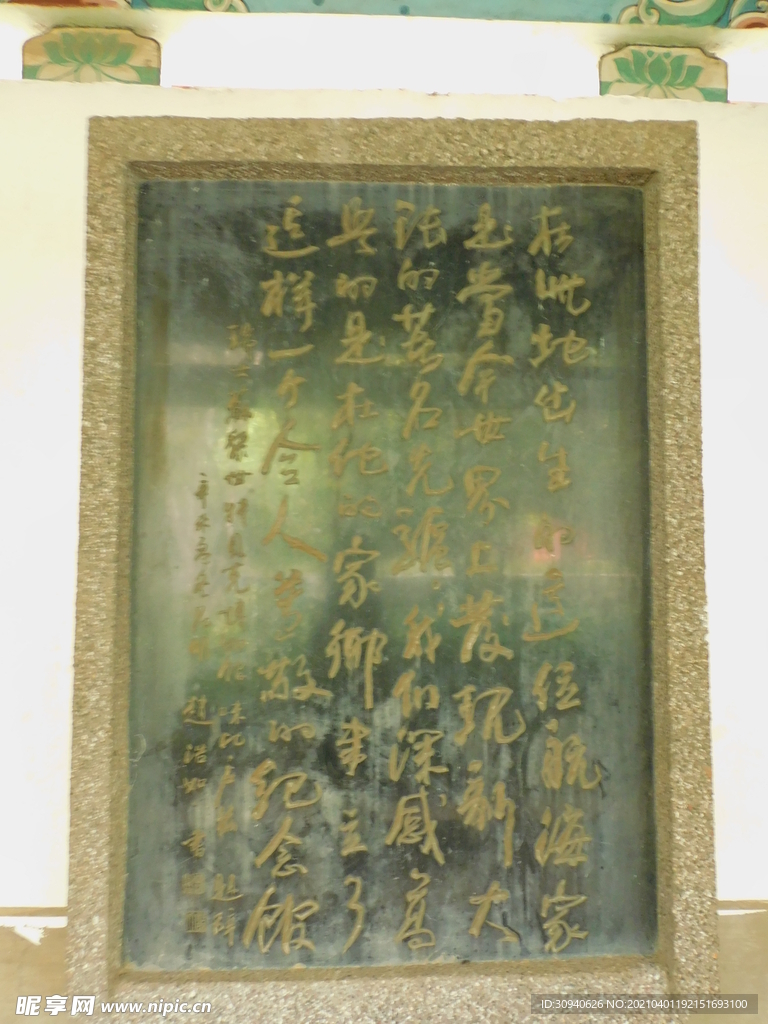 在此地出生的这位航海家
是当今世界上发现新大
陆的著名先驱，我们深感高
兴的是在他的家乡建立了
这样一个令人尊敬的纪念馆
瑞士
题辞
赵浩如 书
昵享网 www.nipic.cn
ID:30940626 NO:20210401192151693100